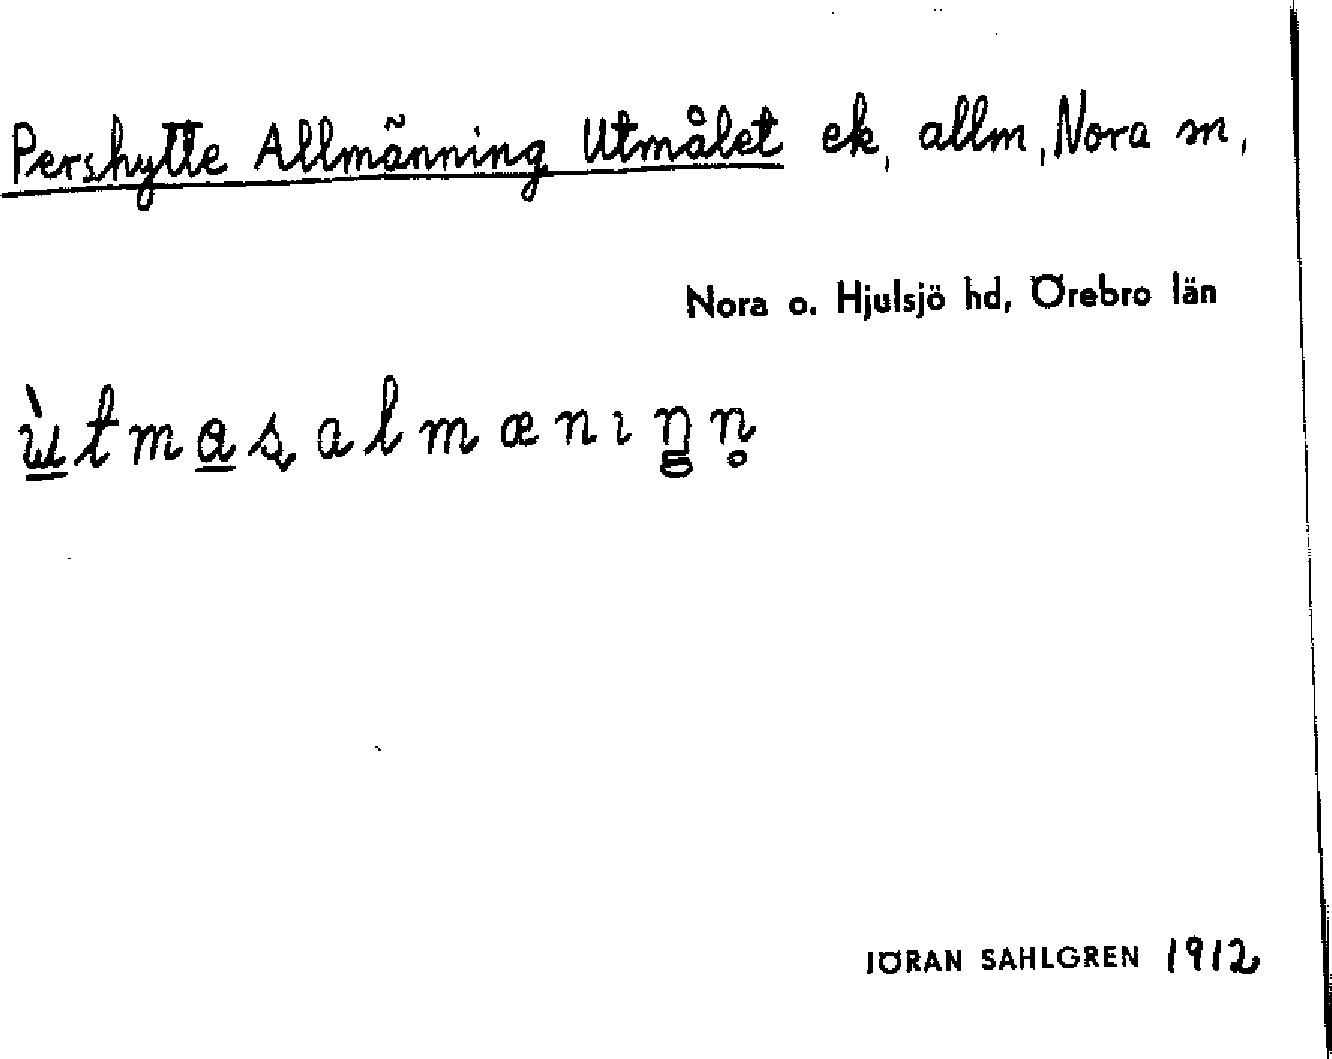 Pershytte Allmänning Utmålet ek, allm, Nora sn,
Nora o. Hjulsjö hd, Örebro län
ùtmaʂalmænıŋn̥
JÖRAN SAHLGREN 1912